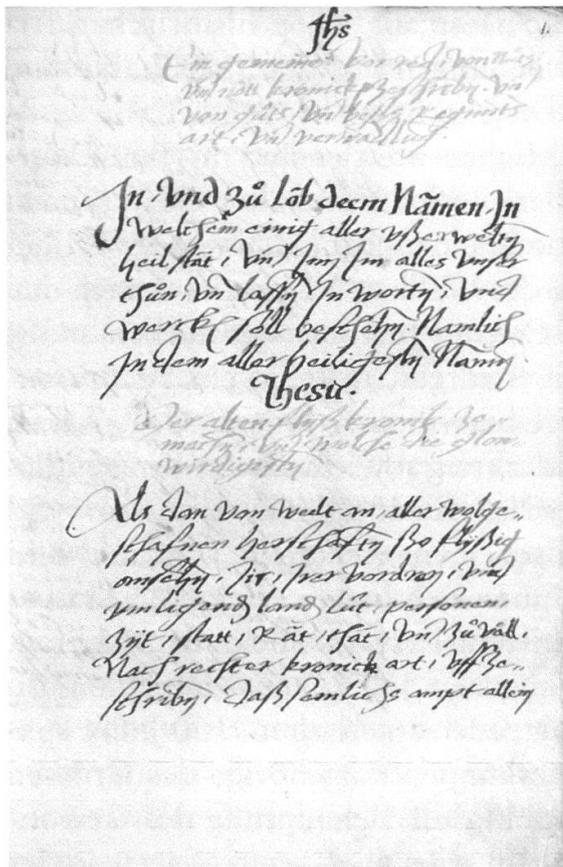 Jhs 1.
Ein gemeine vorred, von nutz
und nott kronick ze schriben, und
von guts, und boeses Regiments
art, und verwaltung.
In und zů lôb deem Nãmen, In
Welchem einig aller ußerwelten
heil stãt, Und Inn Im alles Unser
thůn, Un lassen, In worten, und
wercken, soll beschehen, Namlich
In dem aller heiligesten Namen
Jhesu.
Der alten flyß kronik ze
machen, und welche die glow
wirdigesten
Als dan von welt an, aller wolge-
schafnen herschaften, sso flyssig
ansehen, Ir, Irer vordren, und
umligender land, lüt, personen,
Zyt, statt, Rãt, thãt, und zůvãll,
Nach rechter kronick art, uffze-
schriben, Daß semlichs ampt allein